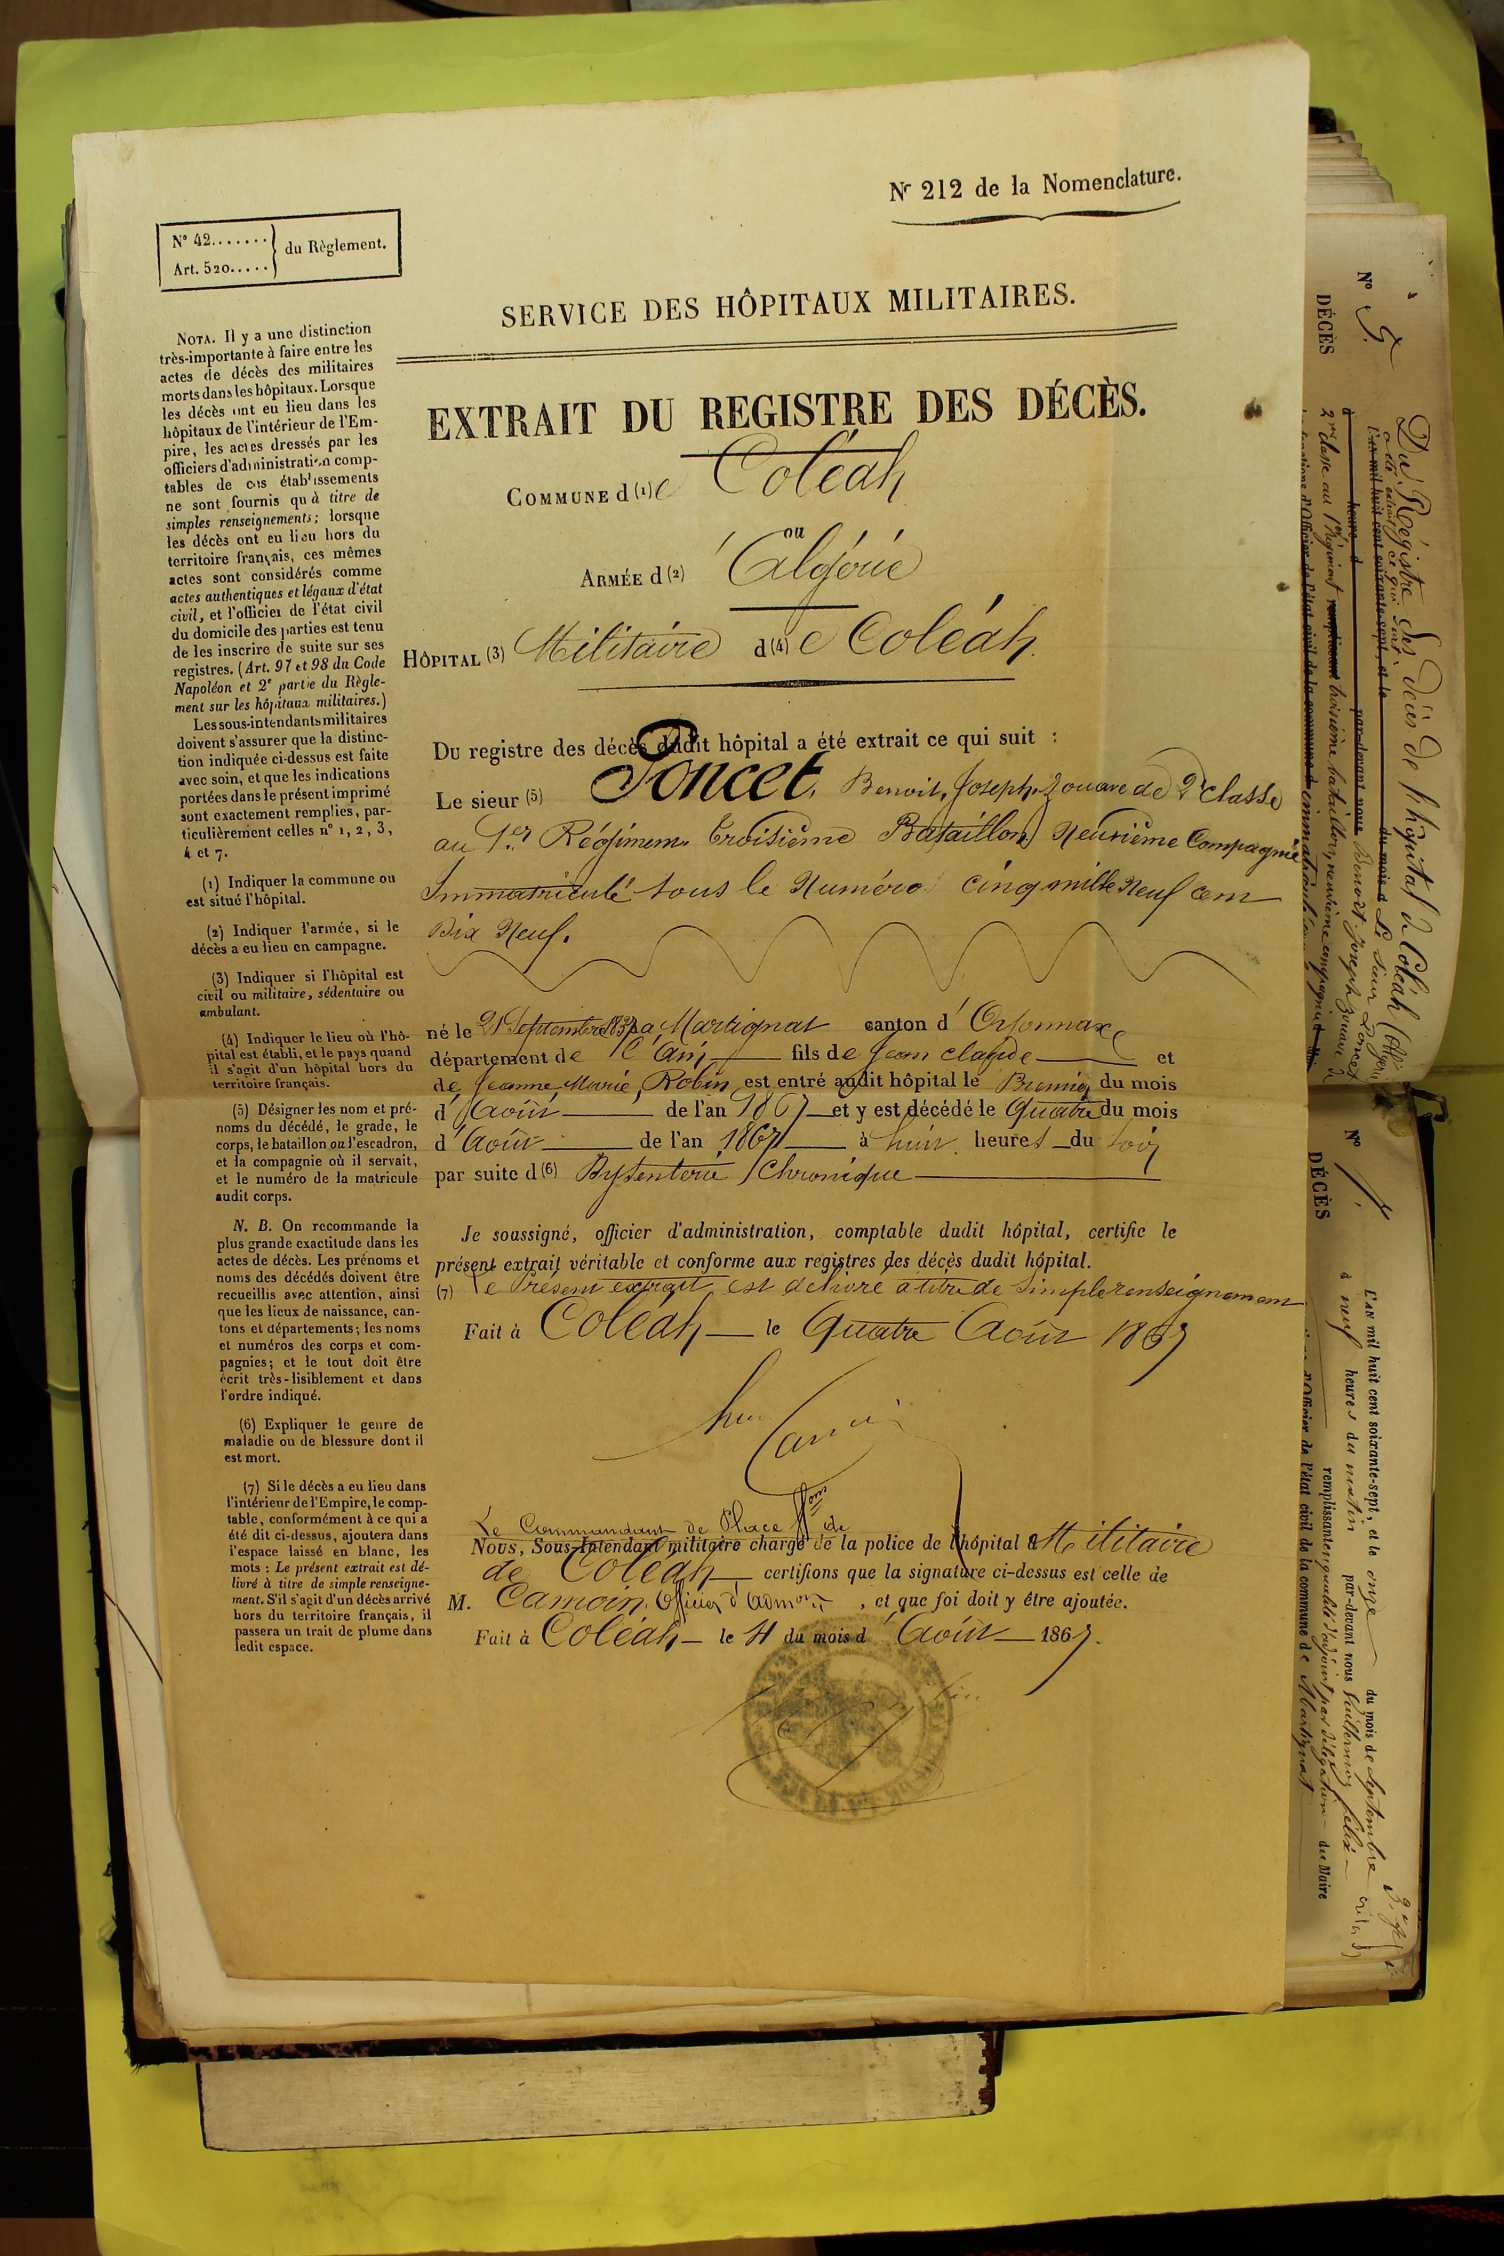 Nr 212 de la Nomenclature.
N° 42....... du Règlement.
Art. 520.....
SERVICE DES HÔPITAUX MILITAIRES.
EXTRAIT DU REGISTRE DES DÉCÈS.
COMMUNE d (1) e Coléah
ou
ARMÉE d (2) Algérie
HÔPITAL (3) Militaire d (4) e Coléah.
Du registre des décès dudit hôpital a été extrait ce qui suit :
Le sieur (5) Poncet, Benoit, Joseph, Zouave de 2e classe
au 1er Régiment Troisième Bataillon Neuvième Compagnie
Immatriculé sous le Numéro cinq mille Neuf cent
Dix Neuf.
né le 21 Septembre à Martignat canton d'Oyonnax
département de l'Ain fils de Jean claude et
de Jeanne Marie, Robin est entré audit hôpital le Premier du mois
d'Août de l'an 1867 et y est décédé le Quatre du mois
d'Août de l'an 1867 à huit heures du soir
par suite d (6) Dysenterie Chronique
Je soussigné, officier d'administration, comptable dudit hôpital, certifie le
présent extrait véritable et conforme aux registres des décès dudit hôpital.
(7) Le Présent extrait est délivré à titre de simple renseignement
Fait à Coléah le Quatre Août 1867
Le Commandant de Place ffons de
Nous, Sous-Intendant militaire chargé de la police de l'hôpital Militaire
de Coléah certifions que la signature ci-dessus est celle de
M. Camoin, Officier d'admon, et que foi doit y être ajoutée.
Fait à Coléah le 4 du mois d'Août 1867.
NOTA. Il y a une distinction
très-importante à faire entre les
actes de décès des militaires
morts dans les hôpitaux. Lorsque
les décès ont eu lieu dans les
hôpitaux de l'intérieur de l'Em-
pire, les actes dressés par les
officiers d'administration comp-
tables de ces établissements
ne sont fournis qu'à titre de
simples renseignements; lorsque
les décès ont eu lieu hors du
territoire français, ces mêmes
actes sont considérés comme
actes authentiques et légaux d'état
civil, et l'officier de l'état civil
du domicile des parties est tenu
de les inscrire de suite sur ses
registres. (Art. 97 et 98 du Code
Napoléon et 2e partie du Règle-
ment sur les hôpitaux militaires.)
Les sous-intendants militaires
doivent s'assurer que la distinc-
tion indiquée ci-dessus est faite
avec soin, et que les indications
portées dans le présent imprimé
sont exactement remplies, par-
ticulièrement celles n° 1, 2, 3,
4 et 7.
(1) Indiquer la commune ou
est situé l'hôpital.
(2) Indiquer l'armée, si le
décès a eu lieu en campagne.
(3) Indiquer si l'hôpital est
civil ou militaire, sédentaire ou
ambulant.
(4) Indiquer le lieu où l'hô-
pital est établi, et le pays quand
il s'agit d'un hôpital hors du
territoire français.
(5) Désigner les nom et pré-
noms du décédé, le grade, le
corps, le bataillon ou l'escadron,
et la compagnie où il servait,
et le numéro de la matricule
audit corps.
N. B. On recommande la
plus grande exactitude dans les
actes de décès. Les prénoms et
noms des décédés doivent être
recueillis avec attention, ainsi
que les lieux de naissance, can-
tons et départements; les noms
et numéros des corps et com-
pagnies; et le tout doit être
écrit très-lisiblement et dans
l'ordre indiqué.
(6) Expliquer le genre de
maladie ou de blessure dont il
est mort.
(7) Si le décès a eu lieu dans
l'intérieur de l'Empire, le comp-
table, conformément à ce qui a
été dit ci-dessus, ajoutera dans
l'espace laissé en blanc, les
mots : Le présent extrait est dé-
livré à titre de simple renseigne-
ment. S'il s'agit d'un décès arrivé
hors du territoire français, il
passera un trait de plume dans
ledit espace.
N°
DÉCÈS
Du Régistre des décès de l'hôpital de Coléah
a été extrait ce qui suit
du mois d Le Sieur Poncet
heure d par-devant nous Benoit Joseph Zouave de
2me classe au 1er Régiment troisième bataillon neuvième compagnie
N°
DÉCÈS
L'AN mil huit cent soixante-sept, et le onze du mois de Septembre
à neuf heures du matin par-devant nous Guillermoz félix
remplissant en qualité d'adjoint par délégation du Maire
d'Officier de l'état civil de la commune de Martignat